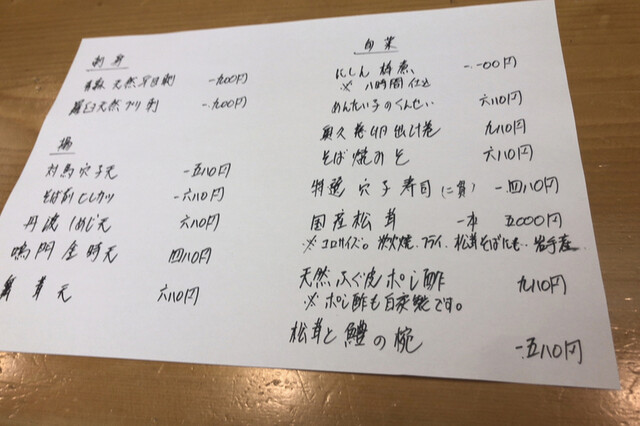 刺身
青森 天然平目刺 一、九〇〇円
羅臼天然ブリ刺 一、九〇〇円
揚
対馬穴子天 一五八〇円
カツ 一六八〇円
丹波しめじ天 六八〇円
鳴門金時天 四八〇円
茸天 六八〇円
旬菜
にしん 一、一〇〇円
※ 八時間仕込
めんたい子のくんせい 六八〇円
出し巻 九八〇円
そば焼みそ 六八〇円
特選 穴子寿司(二貫) 一、四八〇円
国産松茸 一本 五000円
※コロサイズ。炭火焼、フライ、松茸そばにも、岩手産
天然ふぐ皮ポン酢 九八〇円
※ポン酢も自家製です。
松茸と鱧の椀 一、五八〇円